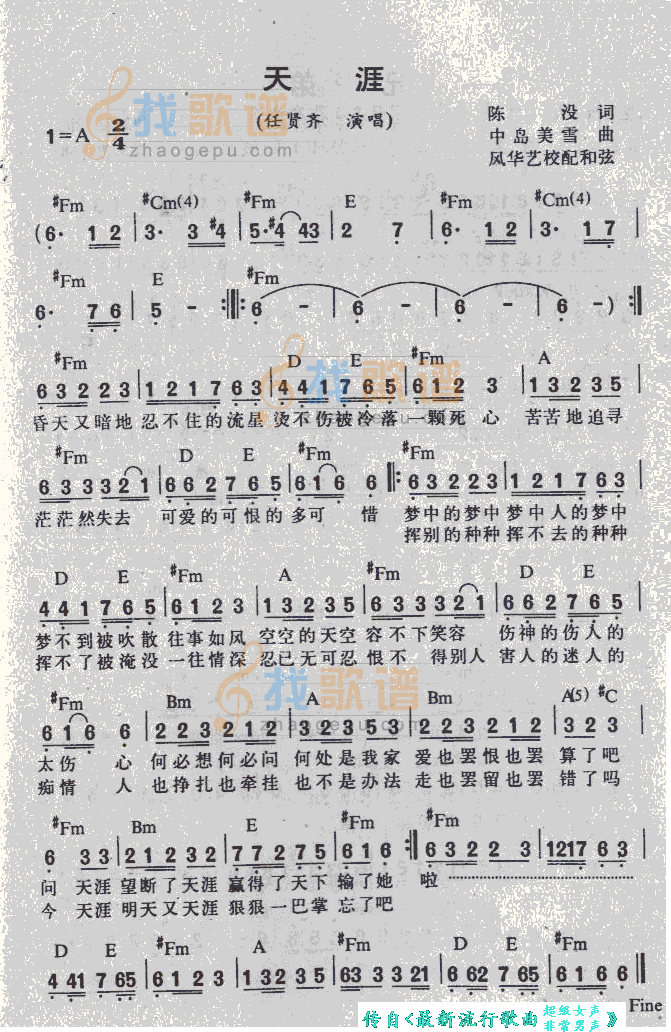 天 涯
(任贤齐 演唱)
陈 没 词
1=A 2/4
中岛美雪 曲
风华艺校配和弦
找歌谱
zhaogepu.com
#Fm #Cm(4) #Fm E #Fm #Cm(4)
(6· 1 2 | 3· 3 #4 | 5·#4 43 | 2 7 | 6· 1 2 | 3· 1 7 |
#Fm E #Fm
6· 7 6 | 5 - :||: 6 - | 6 - | 6 - | 6 - ) :||
#Fm D E #Fm A
6 3 2 2 2 3 | 1 2 1 7 6 3 | 4 4 1 7 6 5 | 6 1 2 3 | 1 3 2 3 5 |
昏天又暗地 忍不住的流星 烫不伤被冷落 一颗死心 苦苦地追寻
#Fm D E #Fm #Fm
6 3 3 3 3 2 1 | 6 6 2 7 6 5 | 6 1 6 6 ||: 6 3 2 2 3 | 1 2 1 7 6 3 |
茫茫然失去 可爱的可恨的多可 惜 梦中的梦中 梦中人的梦中
挥别的种种 挥不去的种种
D E #Fm A #Fm D E
4 4 1 7 6 5 | 6 1 2 3 | 1 3 2 3 5 | 6 3 3 3 3 2 1 | 6 6 2 7 6 5 |
梦不到被吹散 往事如风 空空的天空 容不下笑容 伤神的伤人的
挥不了被淹没 一往情深 忍已无可忍 恨不 得别人 害人的迷人的
#Fm Bm A Bm A(5) #C
6 1 6 6 | 2 2 3 2 1 2 | 3 2 3 5 3 | 2 2 3 2 1 2 | 3 2 3 |
太伤 心 何必想何必问 何处是我家 爱也罢恨也罢 算了吧
痴情 人 也挣扎也牵挂 也不是办法 走也罢留也罢 错了吗
#Fm Bm E #Fm #Fm
6 3 3 | 2 1 2 3 2 | 7 7 2 7 5 | 6 1 6 :|| 6 3 2 2 3 | 1217 6 3 |
问 天涯 望断了天涯 赢得了天下 输了她 啦
今 天涯 明天又天涯 狠狠一巴掌 忘了吧
D E #Fm A #Fm D E #Fm
4 41 7 65 | 6 1 2 3 | 1 32 3 5 | 63 3 3 21 | 6 62 7 65 | 6 1 6 6 ||
Fine
传自《最新流行歌曲 超级女声 非常男声》